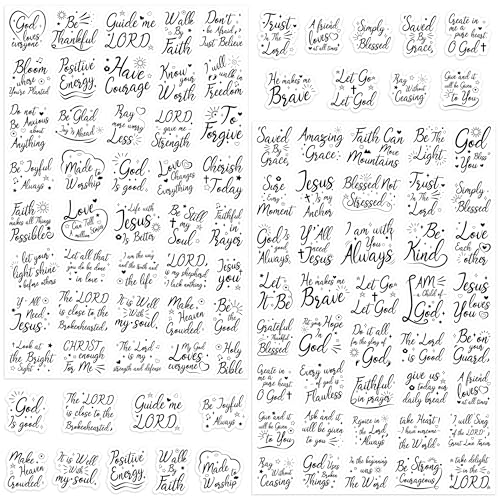 God
loves
everyone
Be
Thankful
Guide me
LORD.
Walk
By
Faith
Don't
be Afraid
Just Believe
Bloom
where
You're Planted
Positive
Energy.
Have
Courage
Know
your
Worth
I will
walk in
Freedom
Do not
Be Anxious
about
Anything
Be Glad
Pray
more
worry
Less
LORD,
give me
Strength
To
Forgive
Be Joyful
Always
Made
to
Worship
God
Is good.
Love
Changes
Everything
Cherish
Today
Faith
makes all Things
Possible
Love
Life with
Jesus
Is Better
Be Still
my
Soul
Faithful
in
Prayer
let your
light shine
before others
Let all that
you do be done
in love
I am the way
and the truth and
the life
The
LORD
is my shepherd
I lack nothing
Jesus
you
Y'All
Need
Jesus
The LORD
is close to the
Brokenhearted
It is Well
With
my soul.
Make
Heaven
Crowded
Be
the
Good
Look at
the Bright
Side
CHRIST
is enough
For Me
The Lord
is my
strength and
defense
My God
Loves
everyone
Holy
Bible
God
Is good.
The LORD
is close to the
Brokenhearted.
Guide me
LORD.
Be Joyful
Always
Make
Heaven
Crowded
It is Well
With
my soul.
Positive
Energy.
Walk
By
Faith
Made
to
Worship
Trust
In The
Lord
A friend
loves
at all times
Simply
Blessed
Saved
By
Grace
Create in
me a
pure heart
O God
He makes me
Brave
Let Go
Let God
Pray
Without
Ceasing
Give and it
will be given
to You
Saved
By
Grace
Amazing
Grace
Faith Can
Move
Mountains
Be
The
Light
God
Bless
You
Every
Moment
Jesus
Is my
Anchor
Blessed Not
Stressed
Trust
In The
Lord
Simply
Blessed
God Is
Good
Always
Y'All
need
Jesus
I am with
You
Always
Be
Kind
Love
Each
other
Let
It Be
He makes me
Brave
Let Go
Let God
I AM
a Child of
God
Follow
Jesus
Grateful
Thankful
Blessed
Hope
In
God
Do it all
for the
glory of
God
The Lord
is Good
Be on
Guard
Create in
me a
pure heart
O God
Every word
of God is
Flawless
Faithful
in prayer
give us
today our
daily bread
A friend
loves
at all times
Give and it
will be given
to You
Ask and it
will be given
to you
Rejoice in
the Lord
Always
take Heart!
I have overcome
the World
I will Sing
of the LORD'S
Great Love Forever
Pray
Without
Ceasing
God
Uses
Broken
Things
In the
beginning
was
The Word
Be Strong
Courageous
take delight in
the LORD